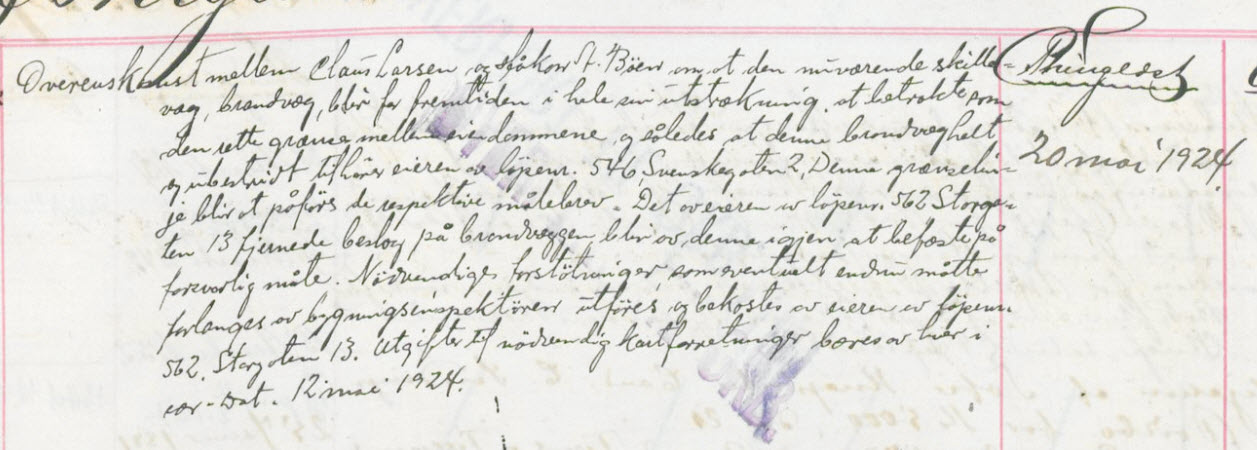 Overenskomst mellem Claus Larsen og Håkon St. Böen om, at den nuværende skille-
væg, brandvæg, blir for fremtiden i hele sin utstrækning at betrakte som
den rette grænse mellem eiendommene, og således at denne brandvæg helt
og ubestridt tilhörer eieren av löpenr. 546, Svenskegaten 2, Denne grænselin-
je blir at påföre de respektive målebrev. Det av eieren av löpenr. 562 Storga-
ten 13 fjernede beslag på brandvæggen blir av denne igjen at befæste på
forsvarlig måte. Nödvendige forstötninger, som eventuelt endnu måtte
forlanges av bygningsinspektören utföres og bekostes av eieren av löpenr.
562, Storgaten 13. Utgifter til nödvendig kartforretninger bæres av hver i
sær. Dat. 12 mai 1924.
Thinglæst
20 mai 1924